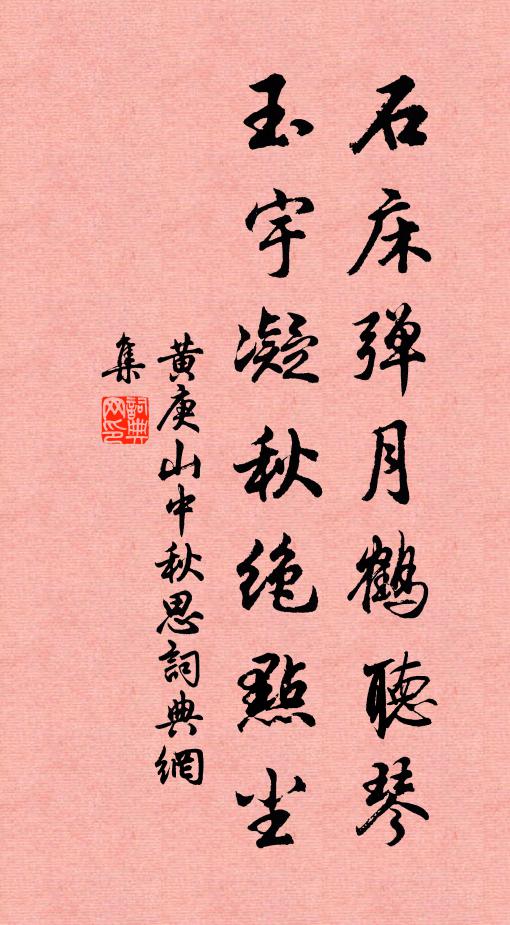 石床弹月鹤聴琴
玉宇凝秋绝點尘
黄庚山中秋思詞典網
集
詞典
网印